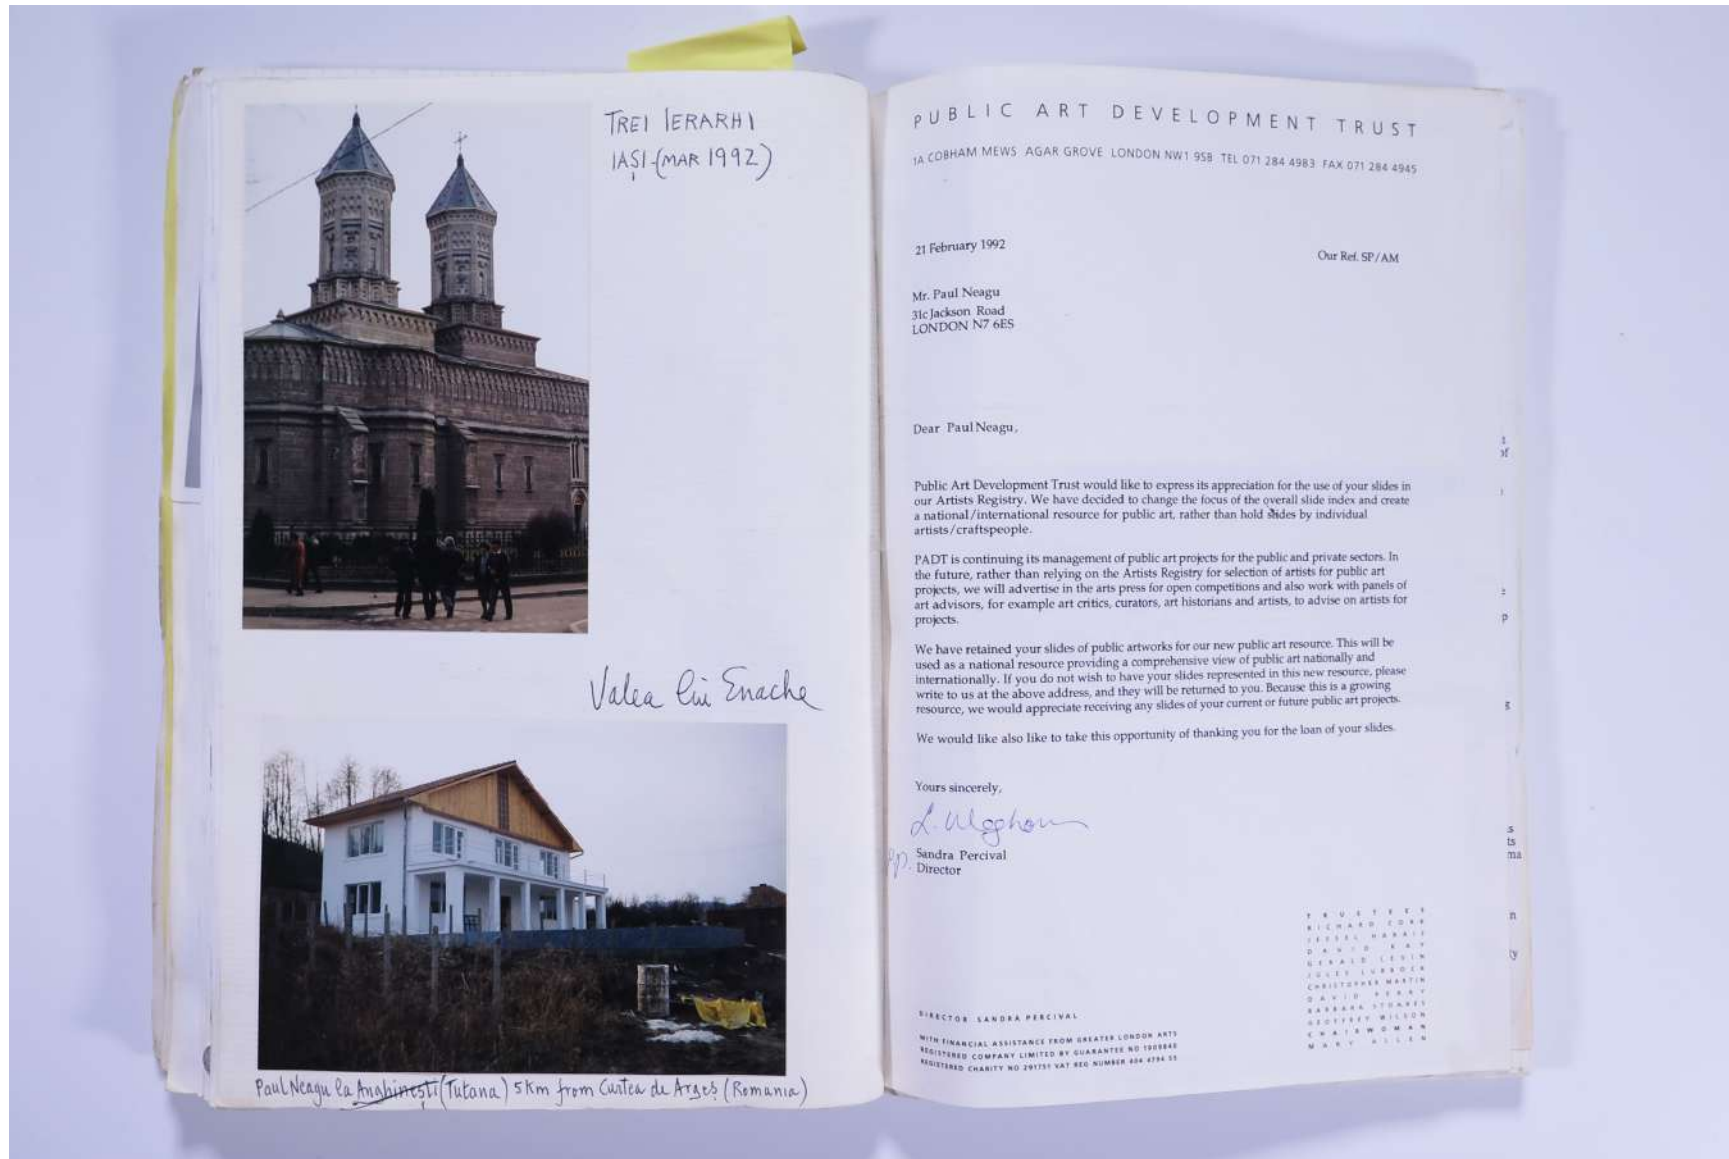 TREI IERARHI
IAȘI-(MAR 1992)
Valea lui Enache
Paul Neagu la Anghinești (Tutana) 5km from Curtea de Argeș (Romania)
PUBLIC ART DEVELOPMENT TRUST
1A COBHAM MEWS AGAR GROVE LONDON NW1 9SB TEL 071 284 4983 FAX 071 284 4945
21 February 1992
Our Ref. SP/AM
Mr. Paul Neagu
31c Jackson Road
LONDON N7 6ES
Dear Paul Neagu,
Public Art Development Trust would like to express its appreciation for the use of your slides in
our Artists Registry. We have decided to change the focus of the overall slide index and create
a national/international resource for public art, rather than hold slides by individual
artists/craftspeople.
PADT is continuing its management of public art projects for the public and private sectors. In
the future, rather than relying on the Artists Registry for selection of artists for public art
projects, we will advertise in the arts press for open competitions and also work with panels of
art advisors, for example art critics, curators, art historians and artists, to advise on artists for
projects.
We have retained your slides of public artworks for our new public art resource. This will be
used as a national resource providing a comprehensive view of public art nationally and
internationally. If you do not wish to have your slides represented in this new resource, please
write to us at the above address, and they will be returned to you. Because this is a growing
resource, we would appreciate receiving any slides of your current or future public art projects.
We would like also like to take this opportunity of thanking you for the loan of your slides.
Yours sincerely,
pp. Sandra Percival
Director
TRUSTEES
RICHARD CORK
JESSEL HARRIS
DAVID KAY
GERALD LEVIN
JULES LUBBOCK
CHRISTOPHER MARTIN
DAVID PERRY
BARBARA STOARES
GEOFFREY WILSON
CHAIRWOMAN
MARY ALLEN
DIRECTOR SANDRA PERCIVAL
WITH FINANCIAL ASSISTANCE FROM GREATER LONDON ARTS
REGISTERED COMPANY LIMITED BY GUARANTEE NO
REGISTERED CHARITY NO 291751 VAT REG NUMBER